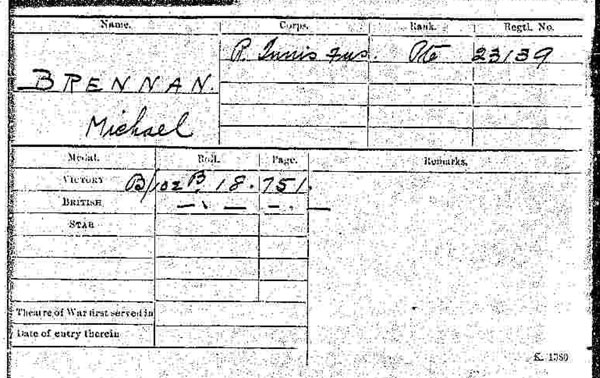 Name. Corps. Rank. Regtl. No.
BRENNAN. R. Innis Fus. Pte 23139
Michael
Medal. Roll. Page. Remarks.
VICTORY B/102 B 18. 751.
BRITISH — " — — " —
STAR
Theatre of War first served in
Date of entry therein
K. 1380